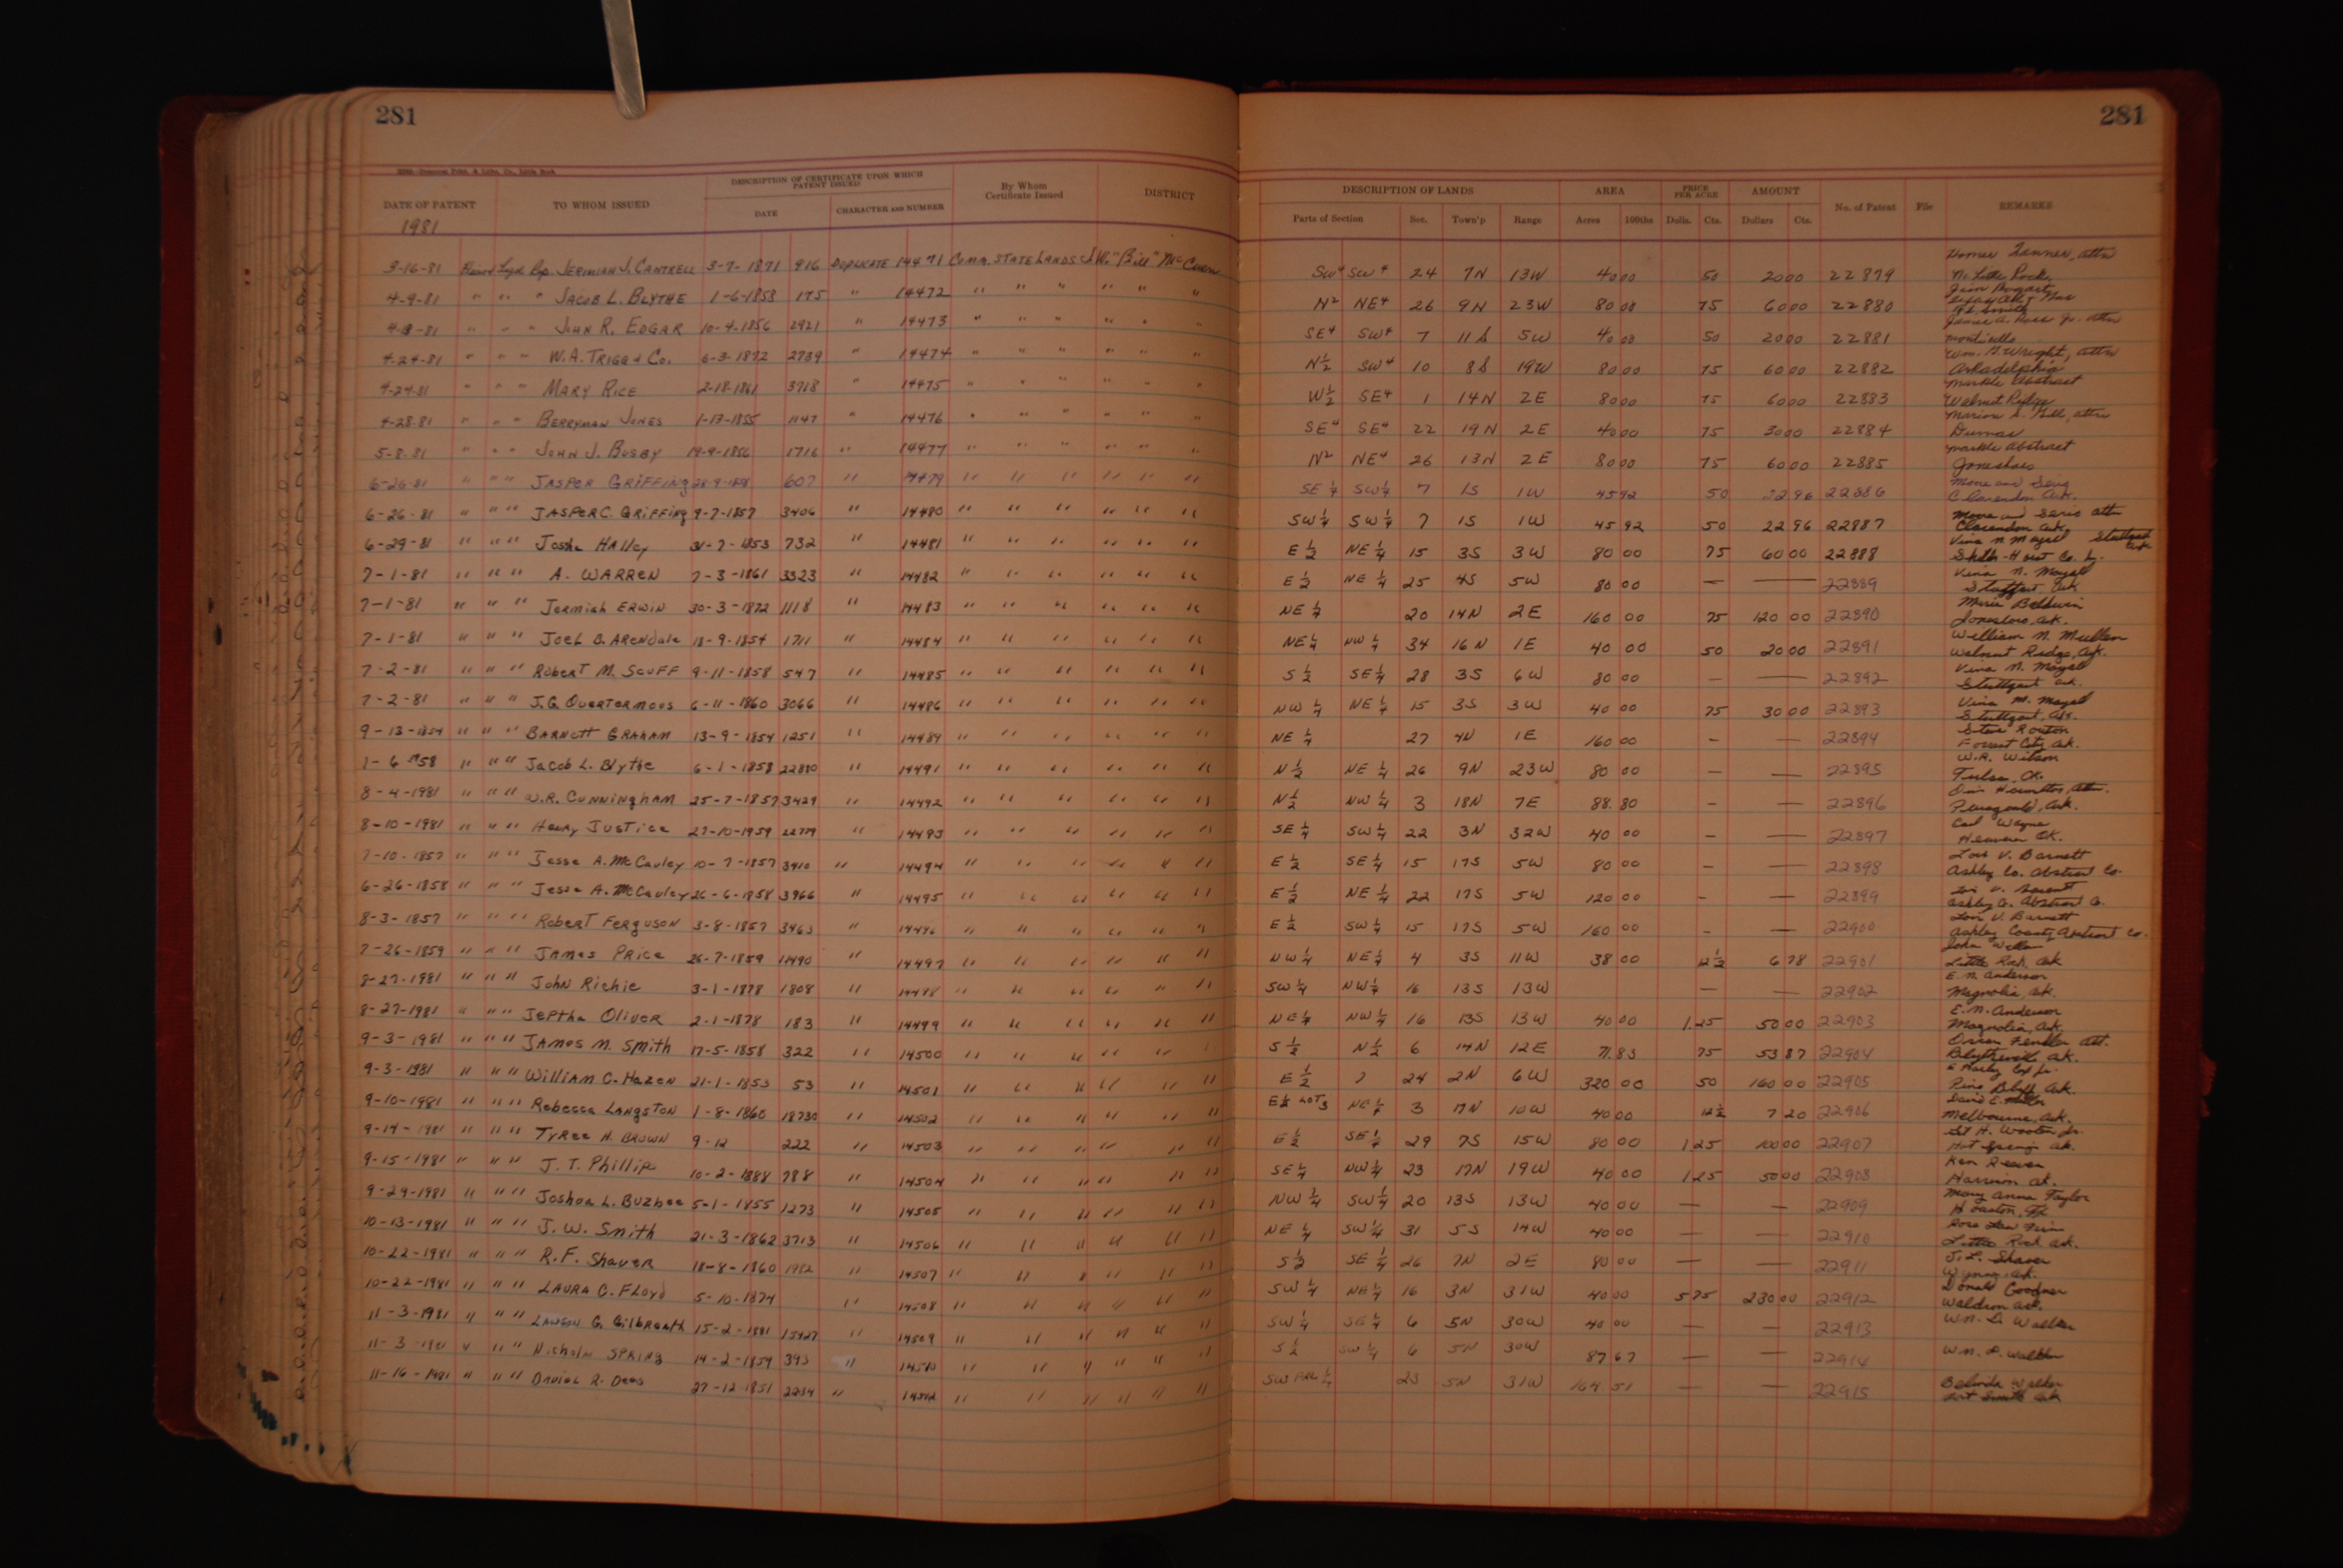 281
281
DATE OF PATENT TO WHOM ISSUED DESCRIPTION OF CERTIFICATE UPON WHICH PATENT ISSUED DATE CHARACTER AND NUMBER By Whom Certificate Issued DISTRICT DESCRIPTION OF LANDS Parts of Section Sec. Town'p Range AREA Acres 100ths PRICE PER ACRE Dolls. Cts. AMOUNT Dollars Cts. No. of Patent File REMARKS
1981
3-16-81 JERIMIAH J. CANTRELL 3-7-1871 916 DUPLICATE 14471 Comm. STATE LANDS "Bill" McCuen SW4 SW4 24 7N 13W 40 00 50 20 00 22879
4-9-81 " " " JACOB L. BLYTHE 1-6-1858 175 " 14472 " " " " " " N2 NE4 26 9N 23W 80 00 75 60 00 22880
" " " JOHN R. EDGAR 10-4-1856 2921 " 14473 " " " " " " SE4 SW4 7 11S 5W 40 00 50 20 00 22881 Monticello
4-24-81 " " " W.A. TRIGG & Co. 6-3-1872 2739 " 14474 " " " " " " N½ SW4 10 8S 19W 80 00 75 60 00 22882 Wm. G. Wright, attn Arkadelphia
4-24-81 " " " MARY RICE 2-18-1861 3718 " 14475 " " " " " " W½ SE4 1 14N 2E 80 00 75 60 00 22883 Markle Abstract Walnut Ridge
4-28-81 " " " BERRYMAN JONES 1-17-1855 1147 " 14476 " " " " " " SE4 SE4 22 19N 2E 40 00 75 30 00 22884 Marion S. Gill, attn Dumas
5-8-81 " " " JOHN J. BUSBY 19-9-1856 1716 " 14477 " " " " " " N2 NE4 26 13N 2E 80 00 75 60 00 22885 Markle Abstract Jonesboro
6-26-81 " " " JASPER GRIFFING 607 " 14479 " " " " " " SE¼ SW¼ 7 1S 1W 45 92 50 22 96 22886 Clarendon Ark.
6-26-81 " " " JASPER C. GRIFFING 9-7-1857 3406 " 14480 " " " " " " SW¼ SW¼ 7 1S 1W 45 92 50 22 96 22887 Clarendon Ark.
6-29-81 " " " Halley 31-7-1853 732 " 14481 " " " " " " E½ NE¼ 15 3S 3W 80 00 75 60 00 22888 Stuttgart Ark
7-1-81 " " " A. WARREN 7-3-1861 3323 " 14482 " " " " " " E½ NE¼ 25 4S 5W 80 00 — — 22889 Stuttgart Ark
7-1-81 " " " Jermiah ERWIN 30-3-1872 1118 " 14483 " " " " " " NE¼ 20 14N 2E 160 00 75 120 00 22890 Marie Baldwin Jonesboro, Ark.
7-1-81 " " " Joel B. Arendale 18-9-1854 1711 " 14484 " " " " " " NE¼ NW¼ 34 16N 1E 40 00 50 20 00 22891 William N. Mullen Walnut Ridge, Ark.
7-2-81 " " " Robert M. Scuff 9-11-1858 547 " 14485 " " " " " " S½ SE¼ 28 3S 6W 80 00 — — 22892 Stuttgart Ark.
7-2-81 " " " J.G. Quertermous 6-11-1860 3066 " 14486 " " " " " " NW¼ NE¼ 15 3S 3W 40 00 75 30 00 22893 Stuttgart, Ark.
9-13-1854 " " " BARNETT GRAHAM 13-9-1854 1251 " 14489 " " " " " " NE¼ 27 4N 1E 160 00 – — 22894 Steve Routon Forrest City, Ark.
1-6-1858 " " " Jacob L. Blythe 6-1-1858 22880 " 14491 " " " " " " N½ NE¼ 26 9N 23W 80 00 – — 22895 W.R. Wilson Tulsa, Ok.
8-4-1981 " " " W.R. CUNNINGHAM 25-7-1857 3429 " 14492 " " " " " " N½ NW¼ 3 18N 7E 88.80 – — 22896 Paragould, Ark.
8-10-1981 " " " Henry JUSTICE 27-10-1959 22779 " 14493 " " " " " " SE¼ SW¼ 22 3N 32W 40 00 – — 22897 Carl Wayne Heavener OK.
7-10-1857 " " " Jesse A. McCauley 10-7-1857 3410 " 14494 " " " " " " E½ SE¼ 15 17S 5W 80 00 – — 22898 Lois V. Barnett Ashley Co. Abstract Co.
6-26-1858 " " " Jesse A. McCauley 26-6-1858 3966 " 14495 " " " " " " E½ NE¼ 22 17S 5W 120 00 – — 22899 Ashley Co. Abstract Co.
8-3-1857 " " " Robert Ferguson 3-8-1857 3463 " 14496 " " " " " " E½ SW¼ 15 17S 5W 160 00 – — 22900 Lois V. Barnett Ashley County Abstract Co.
7-26-1859 " " " JAMES PRICE 26-7-1859 " 14497 " " " " " " NW¼ NE¼ 4 3S 11W 38 00 12½ 6 78 22901 Little Rock, Ark
8-27-1981 " " " John Richie 3-1-1878 1808 " 14498 " " " " " " SW¼ NW¼ 16 13S 13W — — 22902 E. N. Anderson Magnolia, Ark.
8-27-1981 " " " Jeptha Oliver 2-1-1878 183 " 14499 " " " " " " NE¼ NW¼ 16 13S 13W 40 00 1.25 50 00 22903 E. N. Anderson Magnolia, Ark.
9-3-1981 " " " JAMES M. Smith 17-5-1858 322 " 14500 " " " " " " S½ N½ 6 14N 12E 71.83 75 53 87 22904 Oscar Fendler Att. Blytheville Ark.
9-3-1981 " " " William C. Hazen 21-1-1853 53 " 14501 " " " " " " E½ ? 24 2N 6W 320 00 50 160 00 22905 Pine Bluff Ark.
9-10-1981 " " " Rebecca LANGSTON 1-8-1860 18730 " 14502 " " " " " " NE¼ 3 17N 10W 40 00 12½ 7 20 22906 Melbourne, Ark.
9-14-1981 " " " TYREE H. BROWN 9-12 222 " 14503 " " " " " " E½ SE¼ 29 7S 15W 80 00 1 25 100 00 22907 Hot Springs Ark.
9-15-1981 " " " J. T. Phillips 10-2-1888 788 " 14504 " " " " " " SE¼ NW¼ 23 17N 19W 40 00 1 25 50 00 22908 Ken Reeves Harrison Ark.
9-29-1981 " " " Joshua L. Buzbee 5-1-1855 1273 " 14505 " " " " " " NW¼ SW¼ 20 13S 13W 40 00 — — 22909 Mary Anna Taylor Houston, TX
10-13-1981 " " " J. W. Smith 21-3-1862 3713 " 14506 " " " " " " NE¼ SW¼ 31 5S 14W 40 00 — — 22910 Rose Law Firm Little Rock Ark.
10-22-1981 " " " R. F. Shaver 18-8-1860 1982 " 14507 " " " " " " S½ SE¼ 26 7N 2E 80 00 — — 22911 J. L. Shaver Wynne, Ark.
10-22-1981 " " " LAURA C. FLOYD 5-10-1874 " 14508 " " " " " " SW¼ NE¼ 16 3N 31W 40 00 5 75 230 00 22912 Donald Goodner Waldron Ark.
11-3-1981 " " " LAWSON G. Gilbreath 15-2-1881 15427 " 14509 " " " " " " SW¼ SE¼ 6 5N 30W 40 00 — — 22913
11-3-1981 " " " SPRING 14-2-1859 393 " 14510 " " " " " " S½ SW¼ 6 5N 30W 87 67 — — 22914
11-16-1981 " " " R. Dees 27-12-1851 2234 " 14512 " " " " " " SW FRL ¼ 23 5N 31W 164 51 — — 22915 Belinda Walker Fort Smith Ark